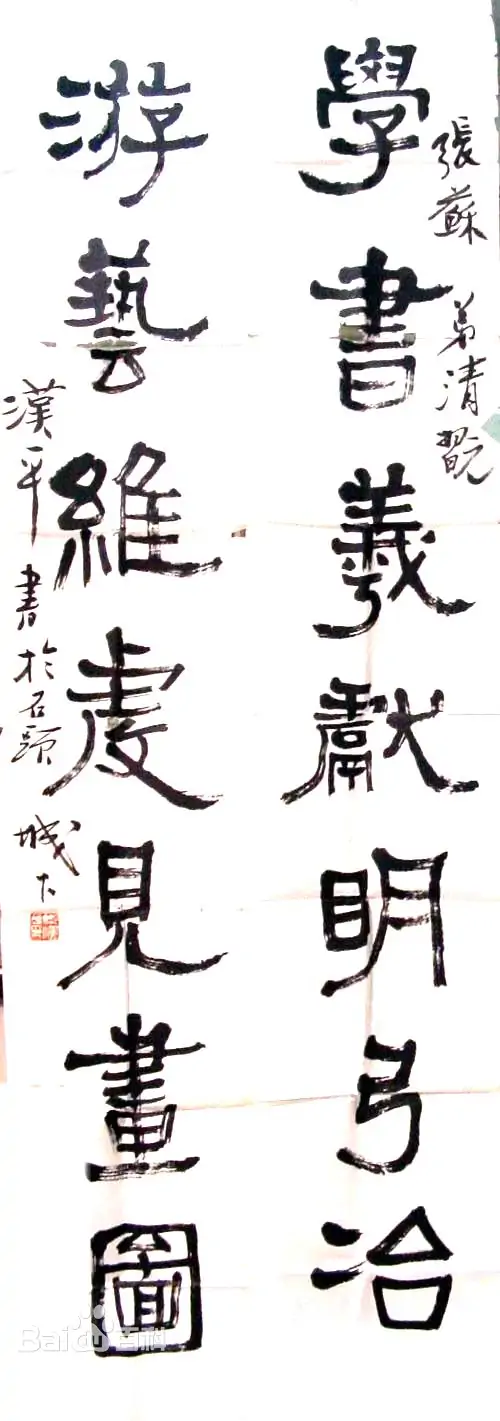 張蘇 弟清翫
學書羲獻明弓冶
游藝維虔見畫圖
漢平書於石頭城下
Baidu百科